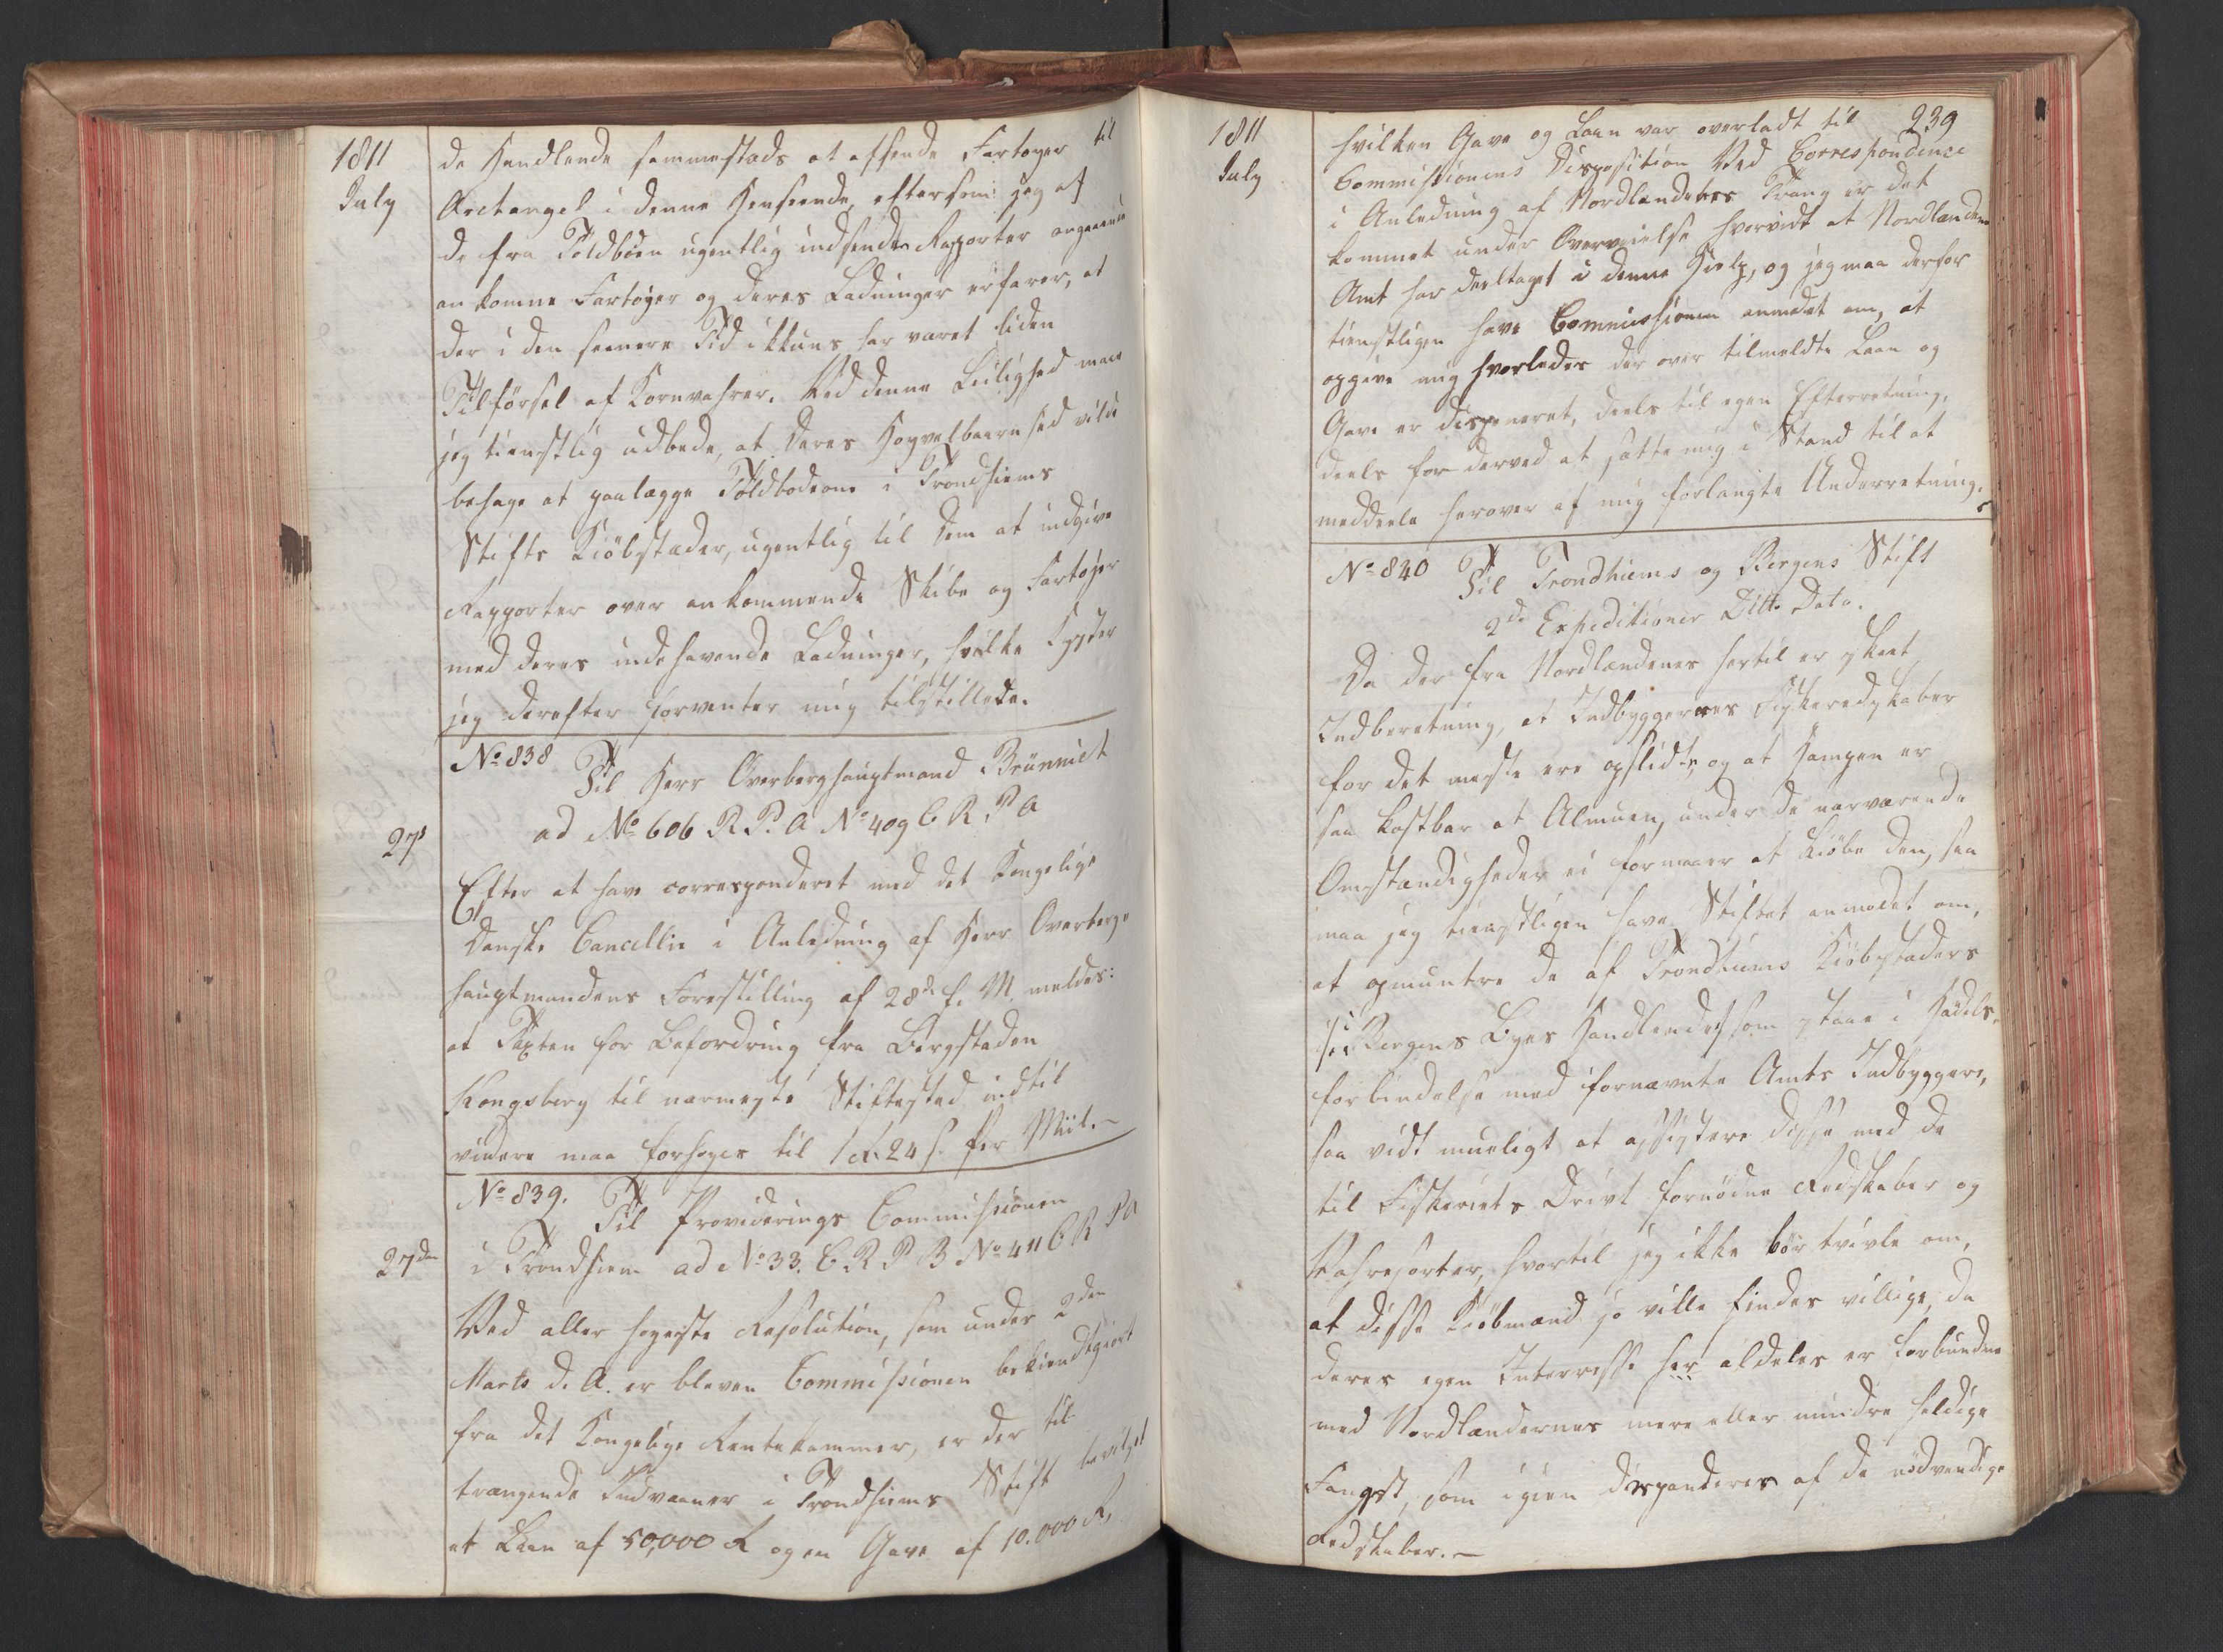 1811
July
de Handlende sammestads at afsende Fartøyer til
Archangel i denne Henseende, eftersom jeg af
de fra Toldboden ugentlig indsendte Rapporter angaaende
ankomne Fartøyer og deres Ladninger erfarer, at
der i den seenere Tid ikkuns har været liden
Tilførsel af Kornvahrer. Ved denne Leilighed maae
jeg tienstlig udbede, at Deres Høyvelbaarnhed vilde
behage at paalægge Toldboderne i Trondhiems
Stifts Kiöbstæder, ugentlig til Dem at indgive
Rapporter over ankommende Skibe og Fartøyer
med deres indehavende Ladninger, hvilke
jeg derefter forventer mig tilstillede.
No 838 Til Herr Overberghauptmand Brünnich
27de
ad No 606 R. P. A No 409 C R P A
Efter at have corresponderet med det Kongelige
Danske Cancellie i Anledning af Herr Overberg-
hauptmandens Forestilling af 28de f. M. meldes:
at Taxten for Befordring fra Bergstaden
Kongsberg til nærmeste Stiftestad indtil
videre maa forhøyes til 1 d. 24 s. per Miil. -
No 839. Til Providerings Commissionen
27den
i Trondhiem ad No 33. C R P B No 411 C R P A
Ved allerhøyeste Resolution, som under 2den
Marts d. A. er bleven Commissionen bekiendtgiort
fra det Kongelige Rentekammer, er der til
trængende Indvaaner i Trondhiems Stift bevilget
et Laan af 50,000 R og en Gave af 10.000 R,
1811
July
239
hvilken Gave og Laan var overladt til
Commissionens Disposition Ved Correspondence
i Anledning af Nordlandenes Trang er det
kommet under Overveielse hvorvidt at Nordlandenes
Amt har deeltaget i denne Hielp, og jeg maa derfor
tienstligen have Commissionen anmodet om, at
opgive mig hvorledes der over tilmeldte Laan og
Gave er disponeret, deels til egen Efterretning,
deels for derved at sætte mig i Stand til at
meddeele herover af mig forlangte Underretning.
No 840 Til Trondhiems og Bergens Stift
2de Expeditioner Ditto Dato.
Da der fra Nordlandenes hertil er skeet
Indberetning, at Indbyggernes Fiskeredskaber
for det meste ere opslidte, og at Hampen er
saa kostbar at Almuen, under de nærværende
Omstændigheder ei formaaer at kiöbe den, saa
maa jeg tienstligen have Stiftet anmodet om,
at opmuntre de af Trondhiems Kiöbstæders
Bergens Byes Handlende som staae i Handels-
forbindelse med fornævnte Amts Indbyggere,
saa vidt mueligt at assistere disse med de
til Fiskeriets Drivt fornödne Redskaber og
Vahresorter, hvortil jeg ikke bör tvivle om,
at disse Kiöbmænd jo ville findes villige, da
deres egen Interresse her aldeles er forbunden
med Nordlændernes mere eller mindre heldige
Fangst, som igien dependerer af de nödvendige
Redskaber. -